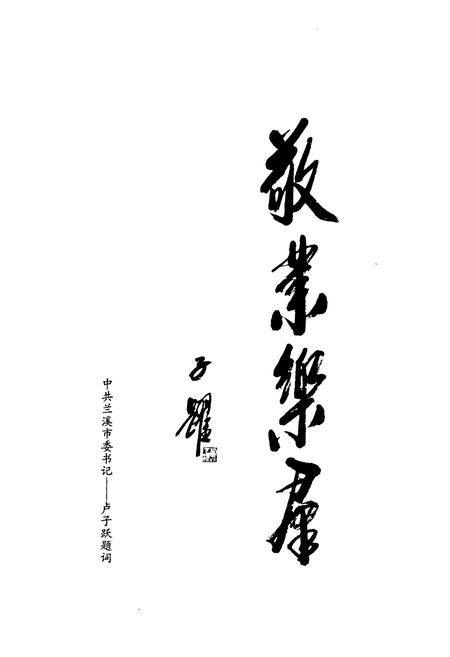 敬業樂群
子躍
中共兰溪市委书记——卢子跃题词